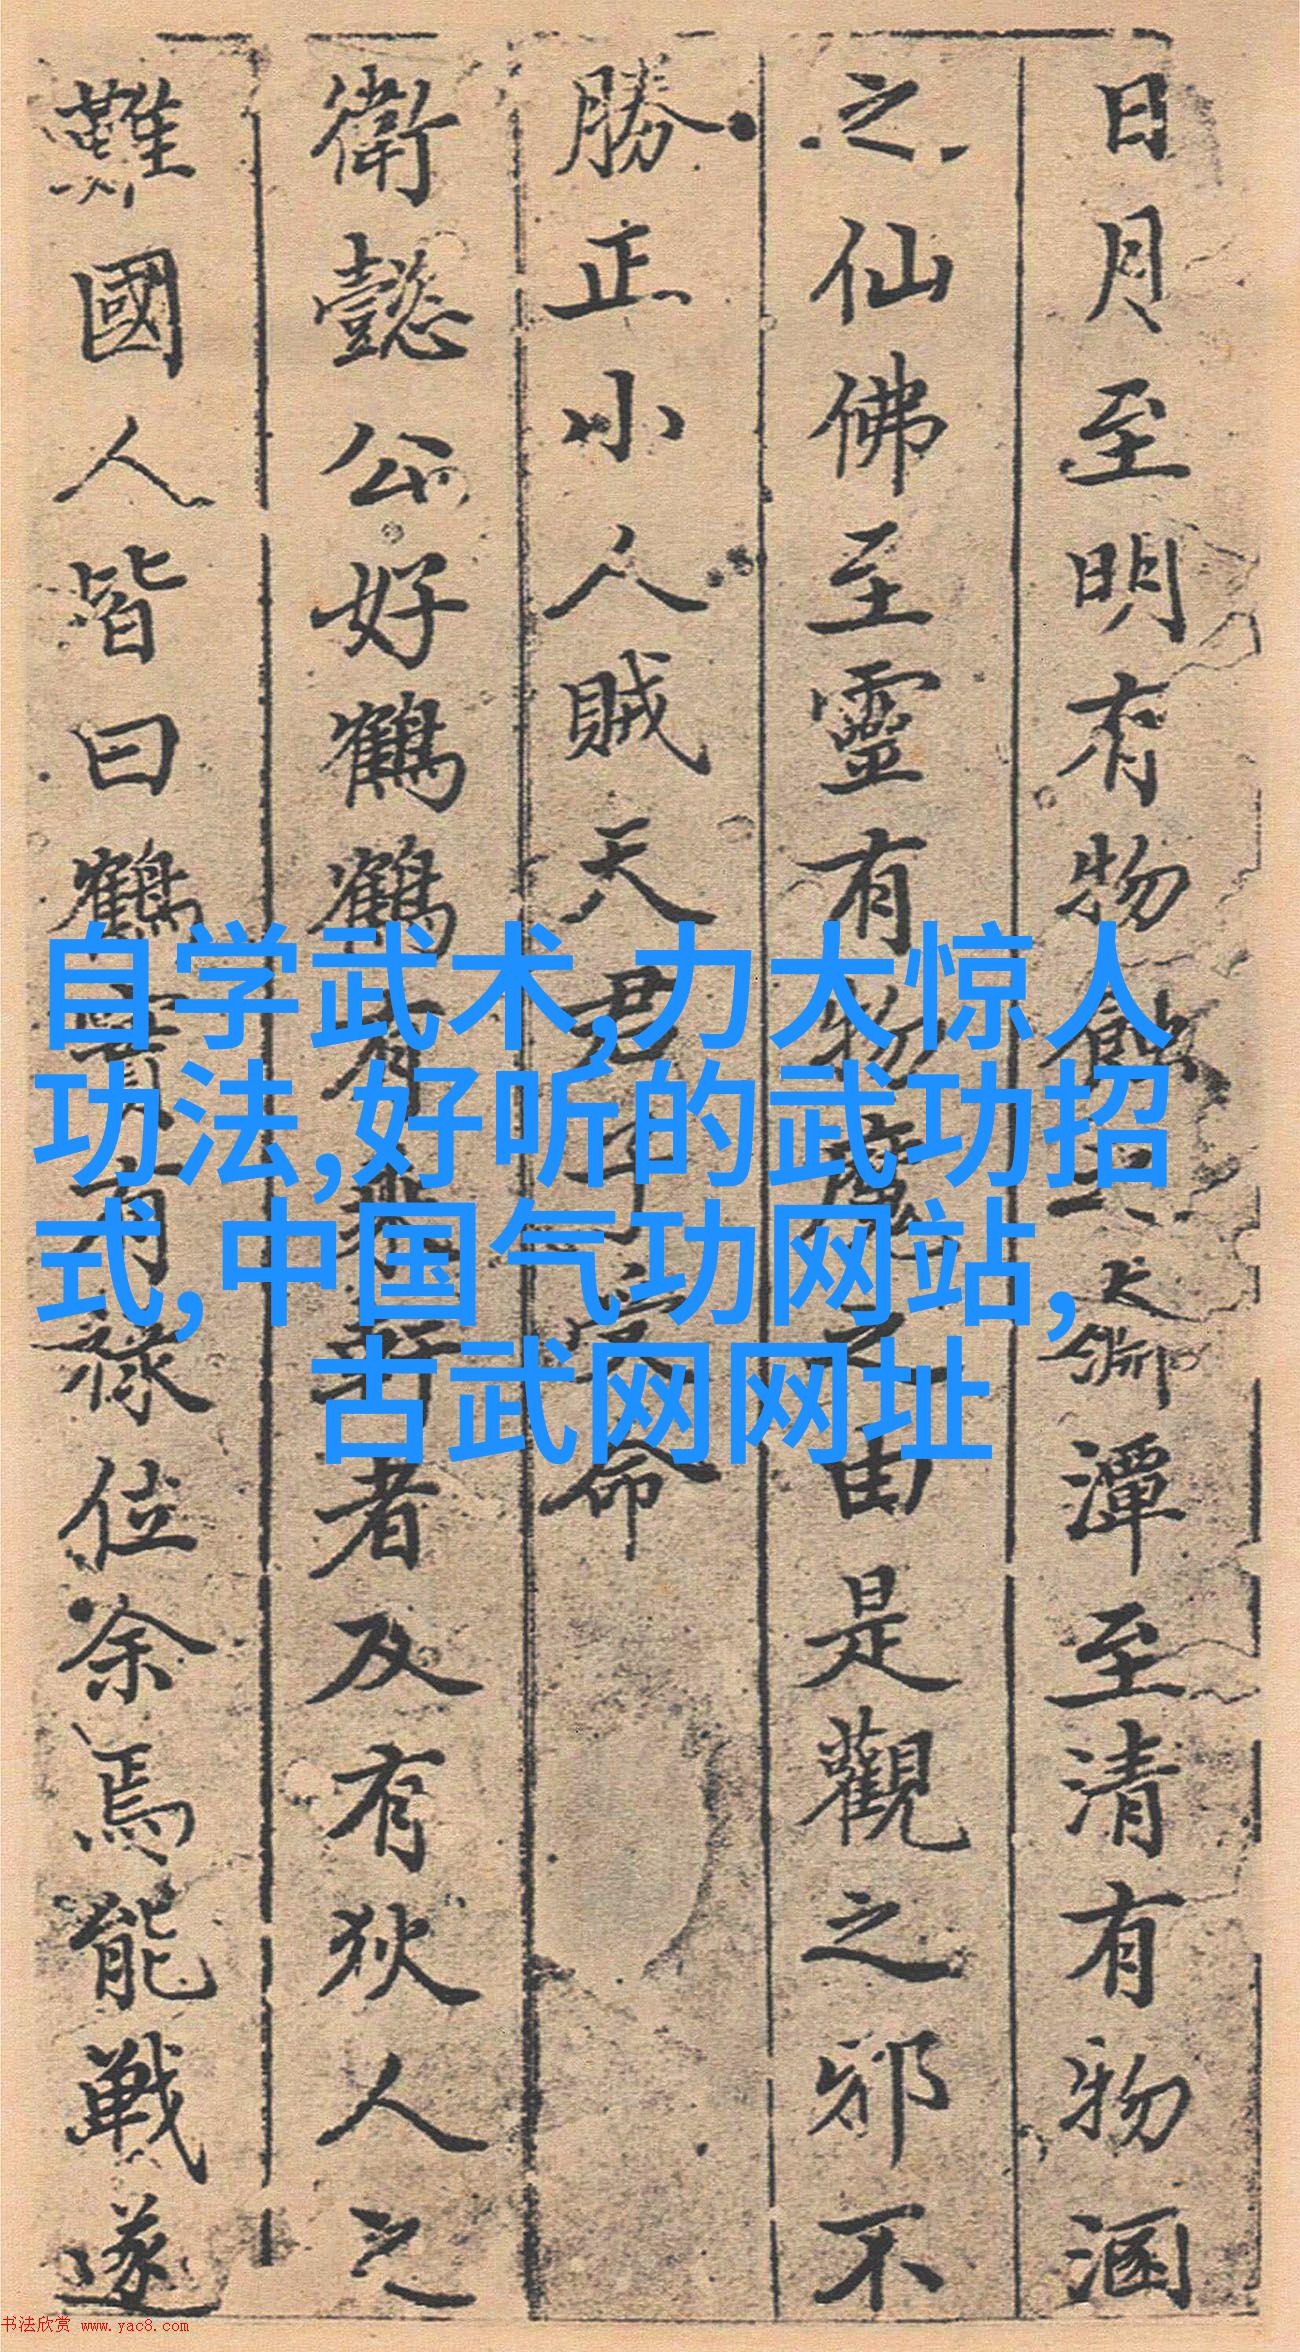 日月至明有物蝕之大潭至清有物涵
之仙佛至靈有物魔之由是觀之邪不
勝正小人賊天君子命
衛懿公好鶴鶴有乘軒者及有狄人之
難國人皆曰鶴實有祿位余焉能戰遂
自学武术,力大惊人
功法,好听的武功招
式,中国气功网站,
古武网网址
书法欣赏 www.yac8.com